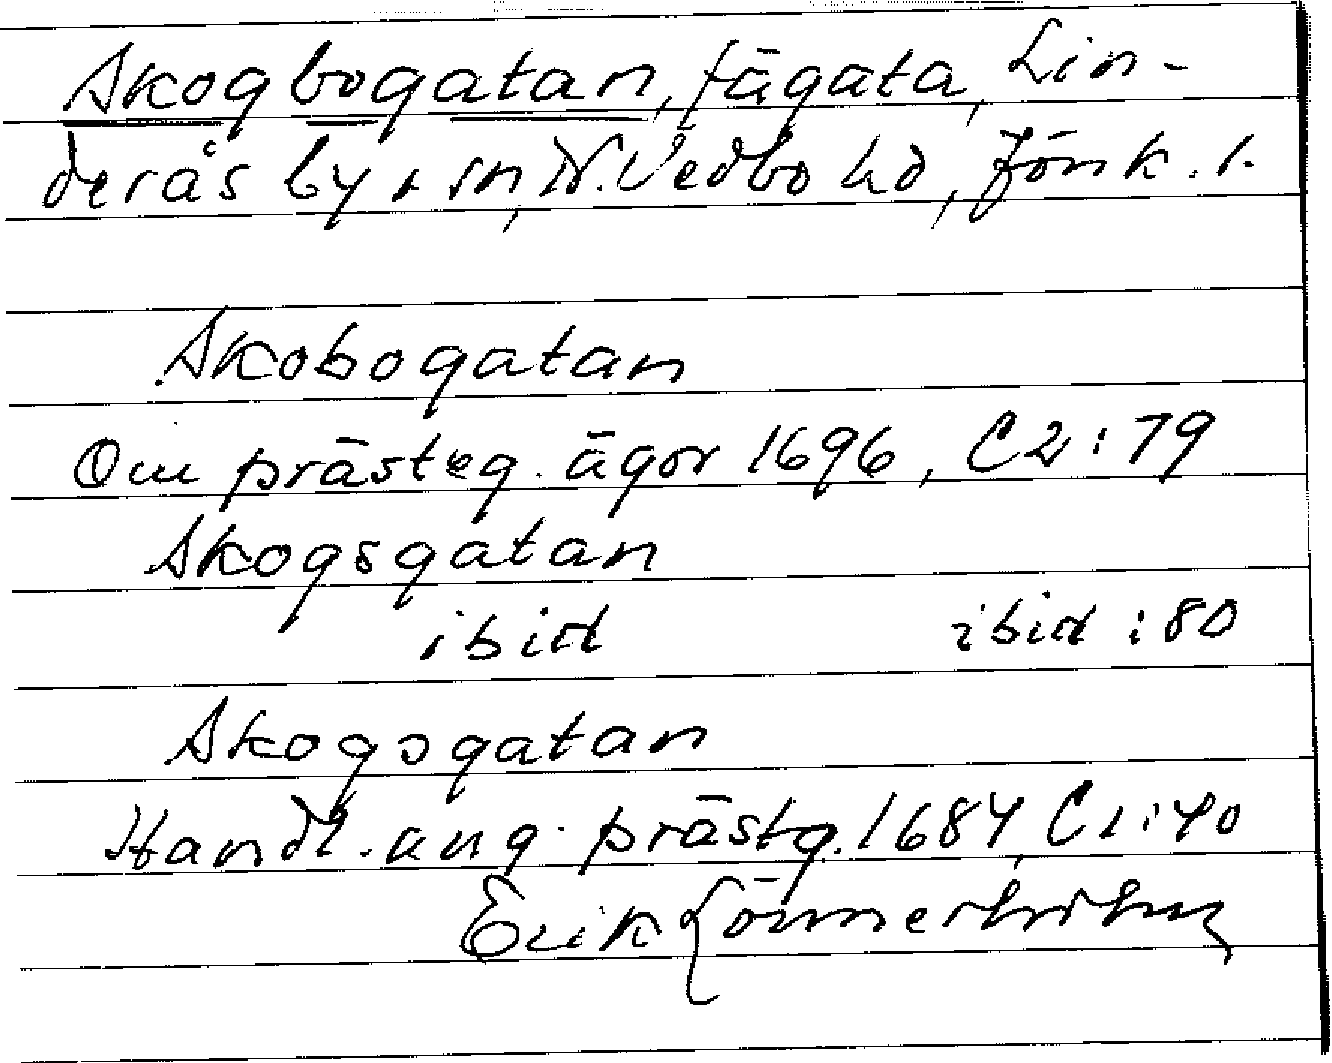 Skogbogatan, fägata, Lin-
derås by o sn, N. Vedbo hd, Jönk. l.
Skobogatan
Om prästeg. ägor 1696, C2:79
Skogsgatan
ibid ibid :80
Skogsgatan
Handl. ang. prästg. 1684, C1:40
Erik